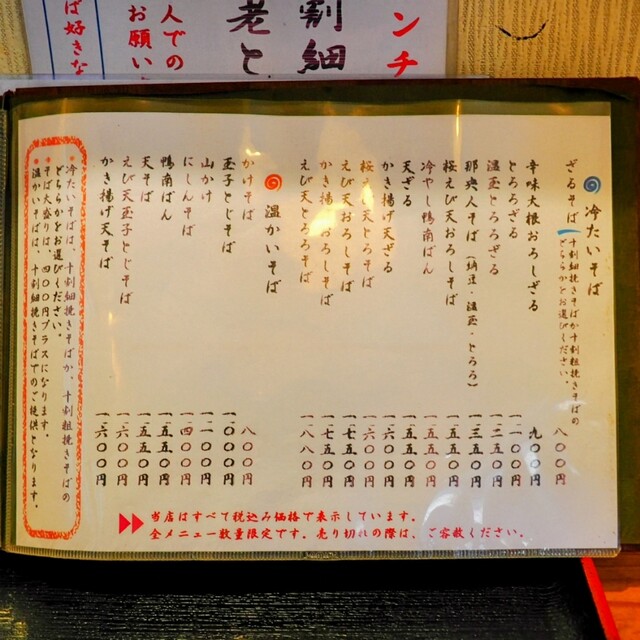 ンチ
割細
老と
人での
お願い
ば好きな
冷たいそば
ざるそば 十割細挽きそばか十割粗挽きそばの
どちらかとお選びください。 八〇〇円
辛味大根おろしざる 九〇〇円
とろろざる 一一〇〇円
温玉とろろざる 一二五〇円
那央人そば(納豆・温玉・とろろ) 一三五〇円
桜えび天おろしそば 一五五〇円
冷やし鴨南ばん 一五五〇円
天ざる 一五五〇円
かき揚げ天ざる 一六〇〇円
桜えび天とろろそば 一六〇〇円
えび天おろしそば 一七五〇円
かき揚げ天おろしそば 一七五〇円
えび天とろろそば 一八八〇円
温かいそば
かけそば 八〇〇円
玉子とじそば 一〇〇〇円
山かけ 一一〇〇円
にしんそば 一四〇〇円
鴨南ばん 一五五〇円
天そば 一五五〇円
えび天玉子とじそば 一六〇〇円
かき揚げ天そば 一六〇〇円
*冷たいそばは、十割細挽きそばか、十割粗挽きそばの
どちらかとお選びください。
*そば大盛りは、四〇〇円プラスになります。
*温かいそばは、十割細挽きそばでのご提供となります。
当店はすべて税込み価格で表示しています。
全メニュー数量限定です。売り切れの際は、ご容赦ください。